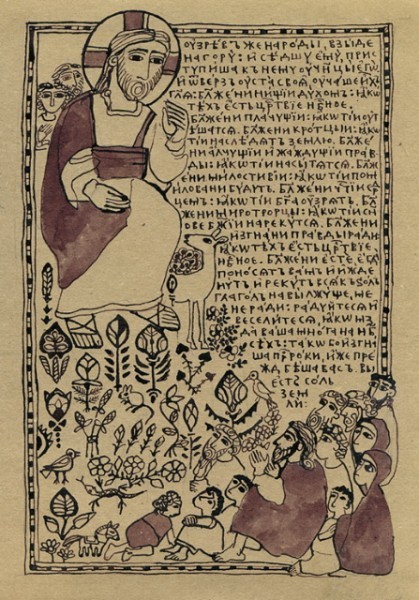 ОУЗРЕВЪ ЖЕ НАРОДЫ, ВЗЫДЕ
НА ГОРУ: И СѢДШУ ЕМУ, ПРИС
ТУПИША КЪ НЕМУ ОУЧНЦЫ ЕГѠ
И ѾВЕРЗЪ ОУСТА СВОѦ, ОУЧАШЕ ИХЪ
ГЛѦ: БЛЖЕНИ НИЩІИ ДУХОМЪ: ꙖКѠ
ТѢХЪ ЕСТЬ ЦРТВІЕ НБНОЕ.
БЛЖЕНИ ПЛАЧУЩІИ: ꙖКѠ ТІИ ОУ
ТѢШАТСѦ. БЛЖЕНИ КРОТЦЫИ: ꙖКѠ
ТІИ НАСЛѢДѦТЪ ЗЕМЛЮ. БЛЖЕ
НИ АЛЧУЩІИ И ЖАЖДУЩІИ ПРАВ
ДЫ: ꙖКѠ ТІИ НАСЫТѦТСѦ. БЛ
ЖЕНИ МИЛОСТИВІИ: ꙖКѠ ТІИ ПОМ
ИЛОВАНИ БУДУТЪ. БЛЖЕНИ ЧТІИ СРД
ЦЕМЪ: ꙖКѠ ТІИ БГА ОУЗРѦТЪ. БЛ
ЖЕНИ МИРОТВОРЦЫ: ꙖКѠ ТІИ СЫНО
ВЕ БЖІИ НАРЕКУТСѦ. БЛЖЕНИ
ИЗГНАНИ ПРАВДЫ РАДИ
ꙖКѠ ТѢХЪ ЕСТЬ ЦРТВІЕ,
НБНОЕ. БЛЖЕНИ ЕСТЕ, ЕГДА
ПОНОСѦТЪ ВАМЪ И ИЖДЕ
НУТЪ И РЕКУТЪ ВСѦКЪ ЗОЛЪ
ГЛАГОЛЪ НА ВЫ ЛЖУЩЕ, МЕ
НЕ РАДИ: РАДУЙТЕСѦ И
ВЕСЕЛИТЕСѦ, ꙖКѠ МЗ
ДА ВАША МНОГА НА НБ
СѢХЪ: ТАКѠ БО ИЗГНА
ША ПРРОКИ, ИЖЕ ПРЕ
ЖДЕ БѢША ВАСЪ. ВЫ
ЕСТЕ СОЛЬ
ЗЕМ
ЛИ: